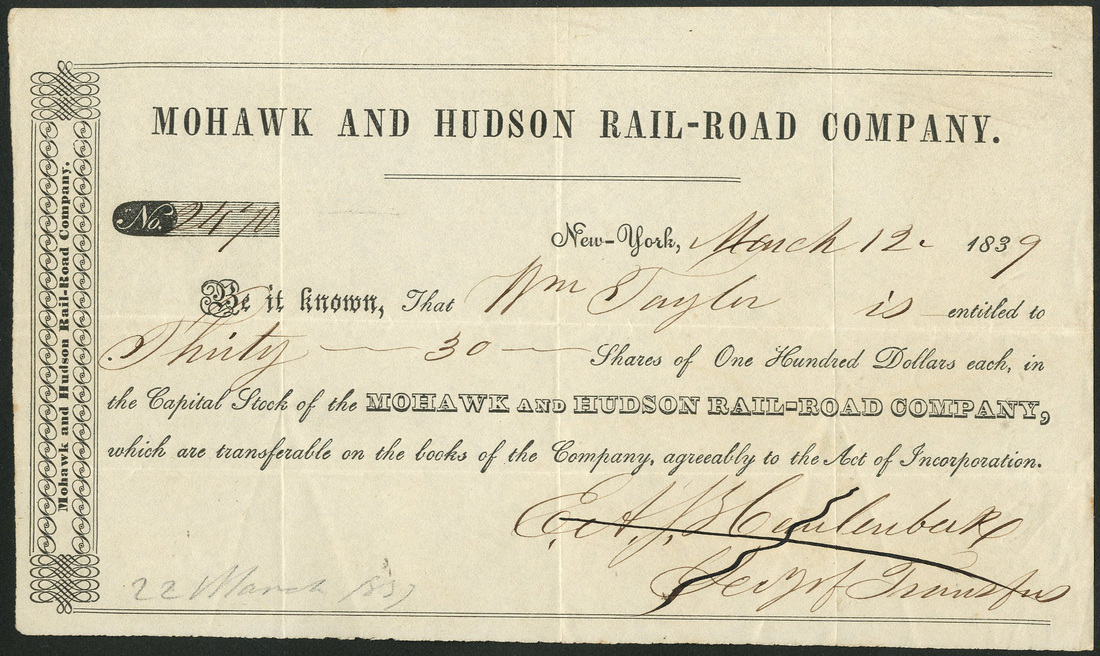 MOHAWK AND HUDSON RAIL-ROAD COMPANY.
No. 2470
New-York, March 12 1839
Be it known, That Wm Taylor is entitled to
Thirty 30 Shares of One Hundred Dollars each, in
the Capital Stock of the MOHAWK AND HUDSON RAIL-ROAD COMPANY,
which are transferable on the books of the Company, agreeably to the Act of Incorporation.
of Transfers
22 March
Mohawk and Hudson Rail-Road Company.